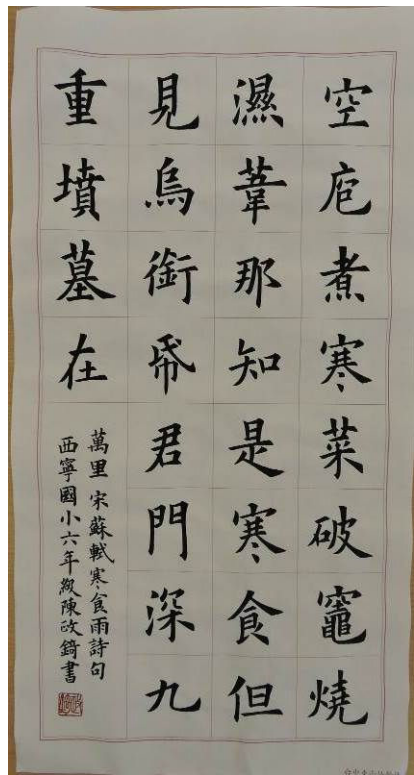 空庖煮寒菜破竈燒
濕葦那知是寒食但
見烏銜帋君門深九
重墳墓在
萬里 宋蘇軾寒食雨詩句
西寧國小六年級陳政錡書